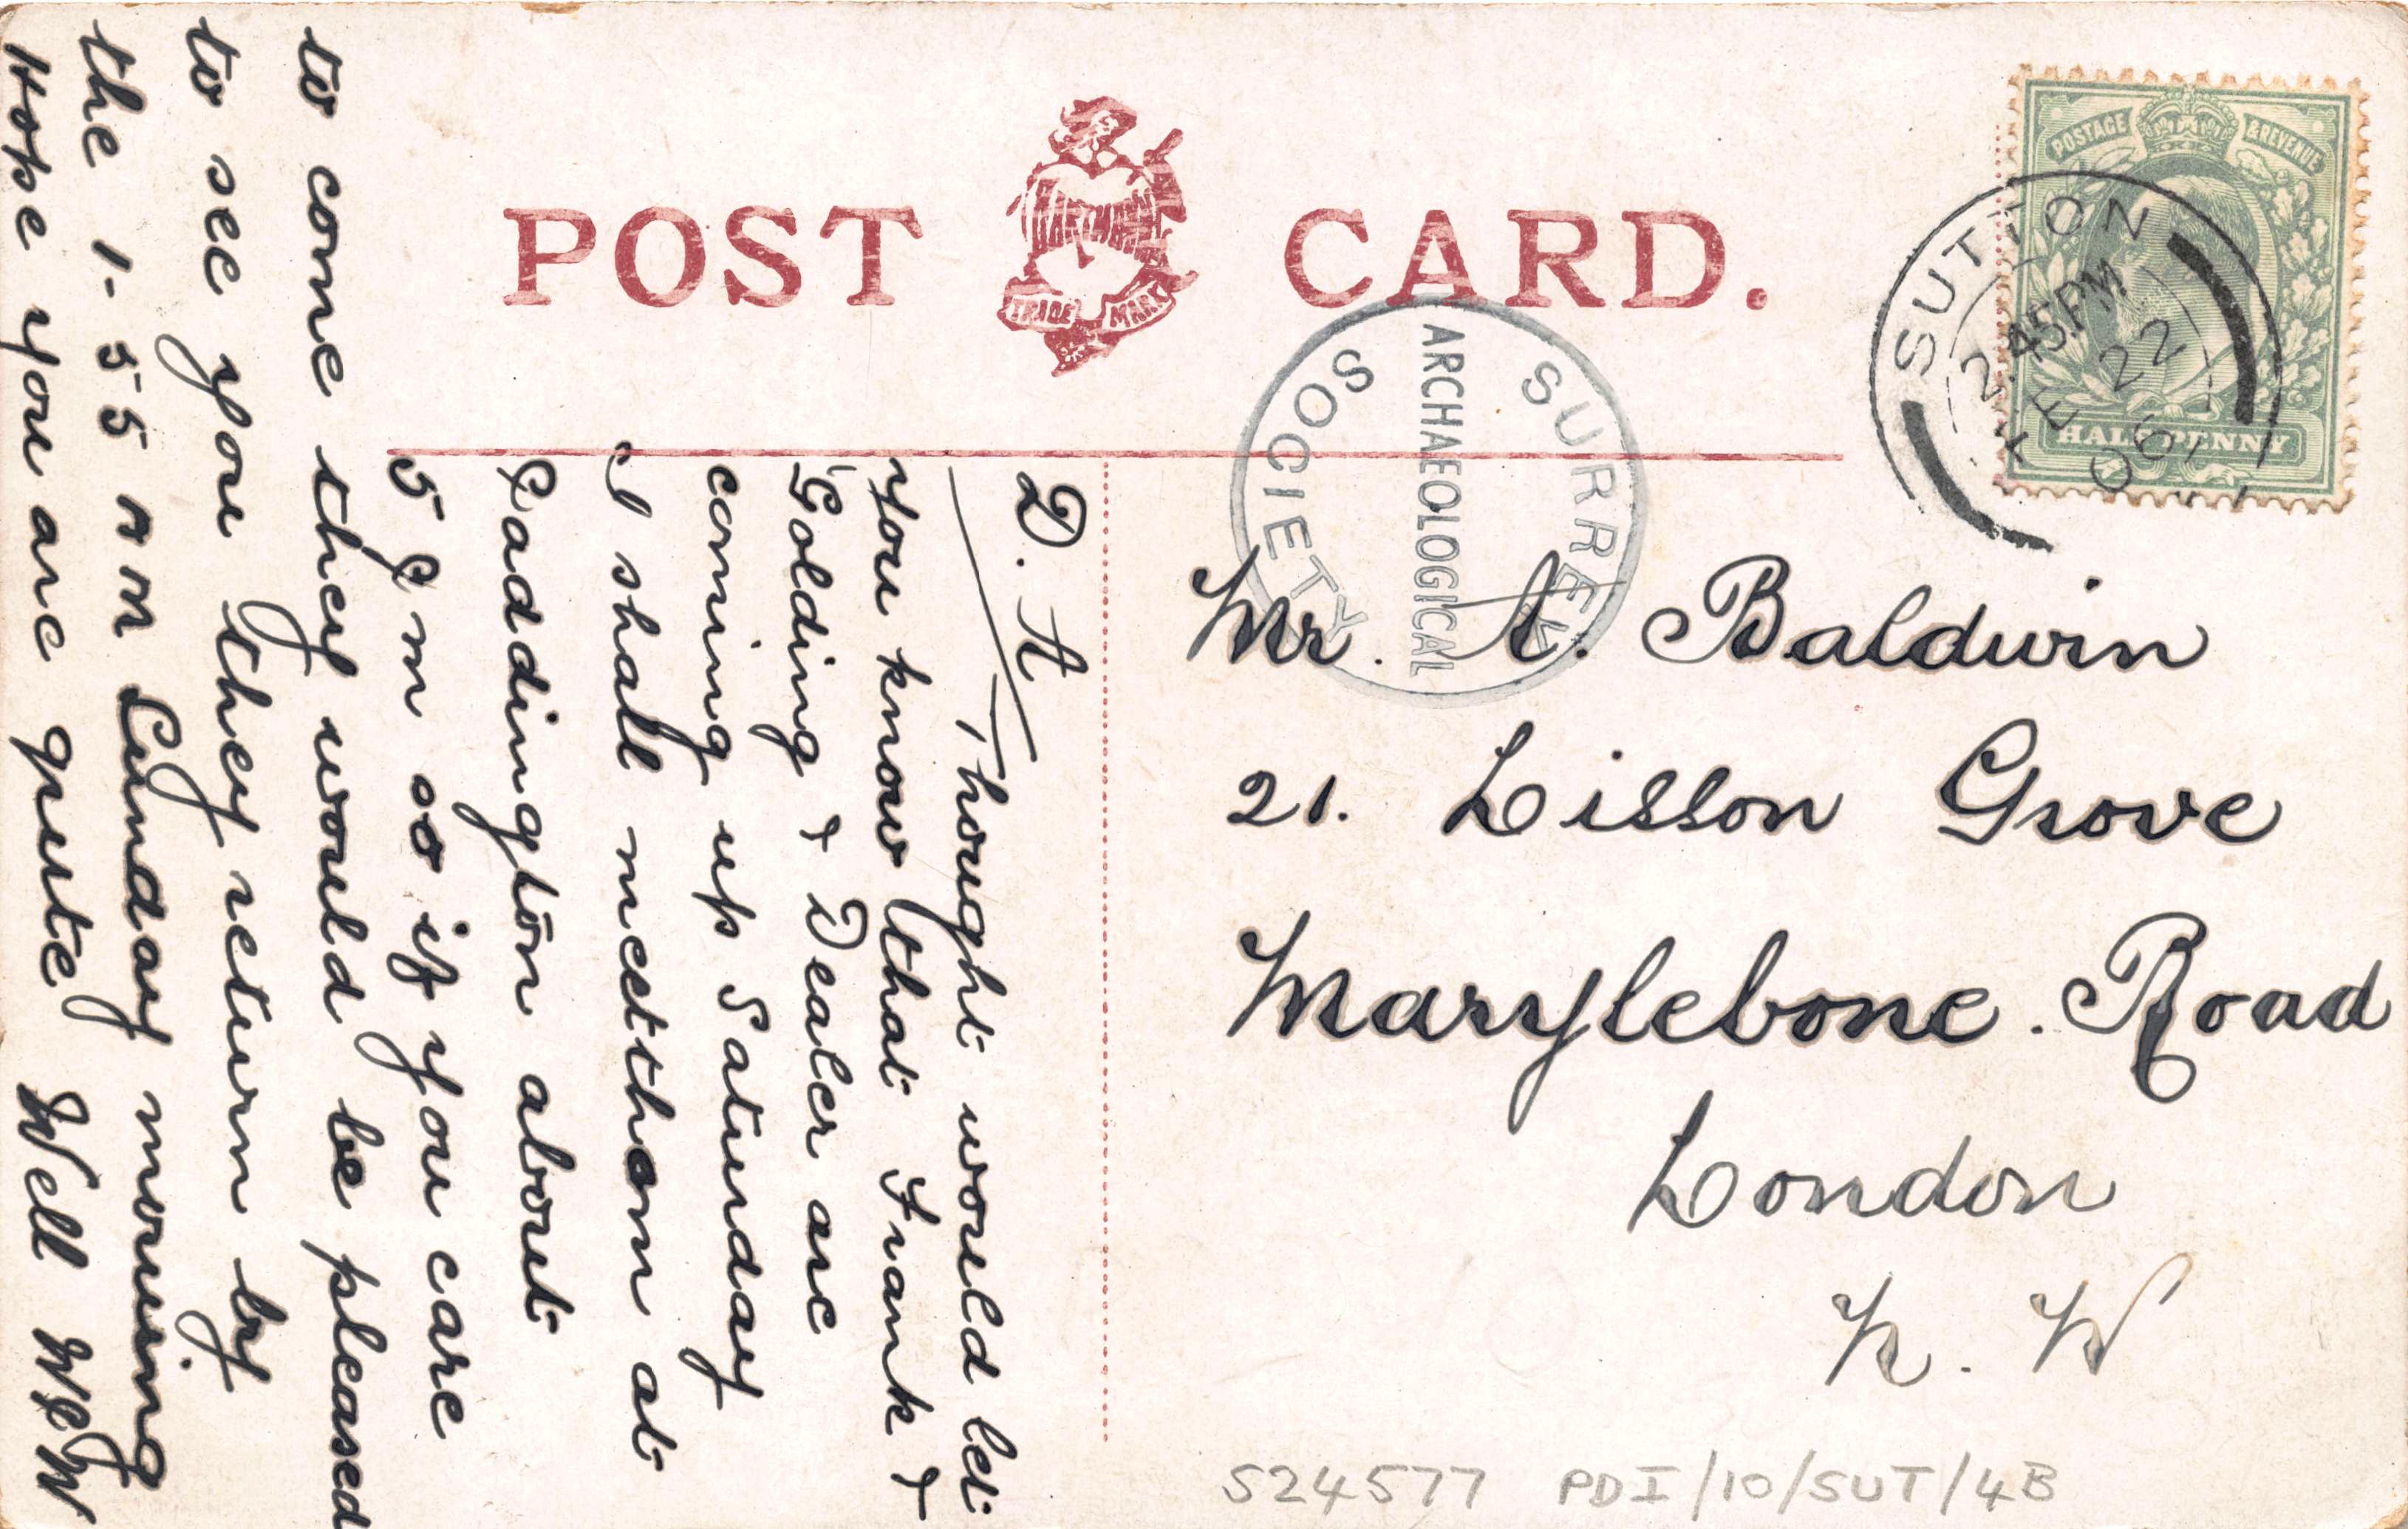 POST CARD.
HARTMANN
TRADE MARK
POSTAGE & REVENUE
HALFPENNY
SUTTON
2.45PM
FE 22
06
SURREY
ARCHAEOLOGICAL
SOCIETY
Mr. A. Baldwin
21. Lisson Grove
Marylebone. Road
London
N. W
S24577 PDI/10/SUT/4B
D. A
Thought would let
you know that Frank &
Golding & Dealer are
coming up Saturday
I shall meet them at
Paddington about
5 Pm so if you care
to come they would be pleased
to see you they return by
the 1-55 AM Sunday morning
Hope you are quite Well